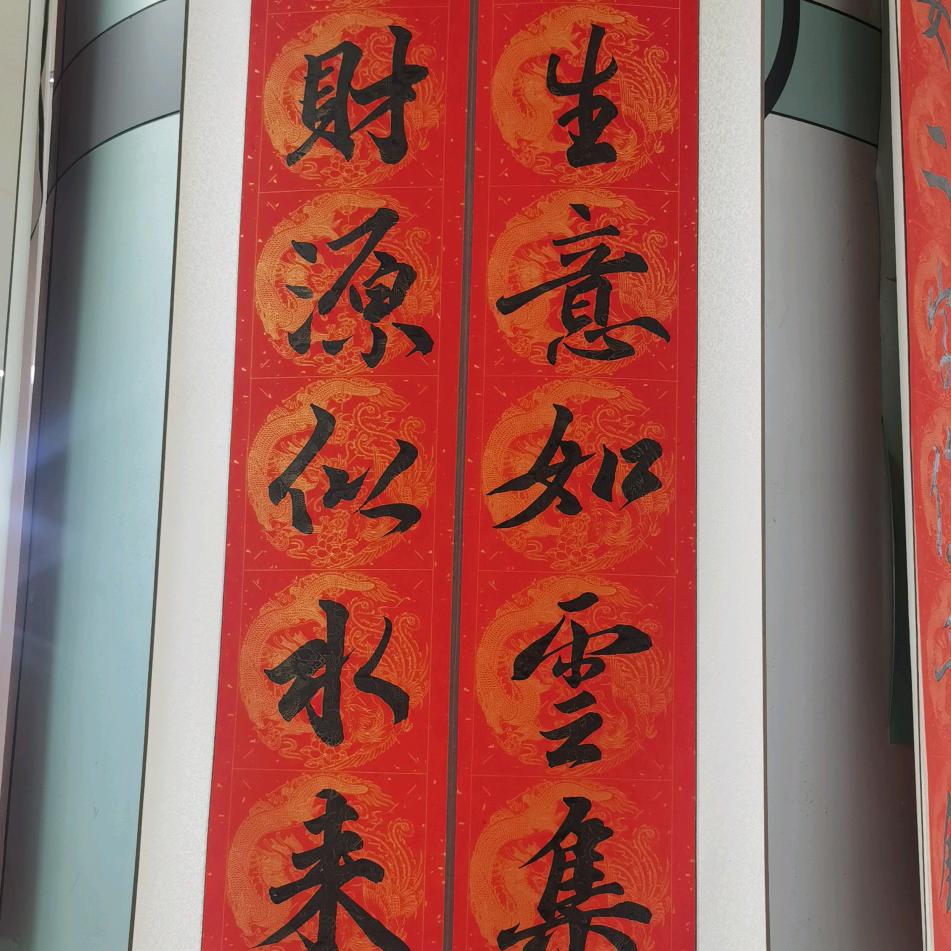 生意如雲集
財源似水来